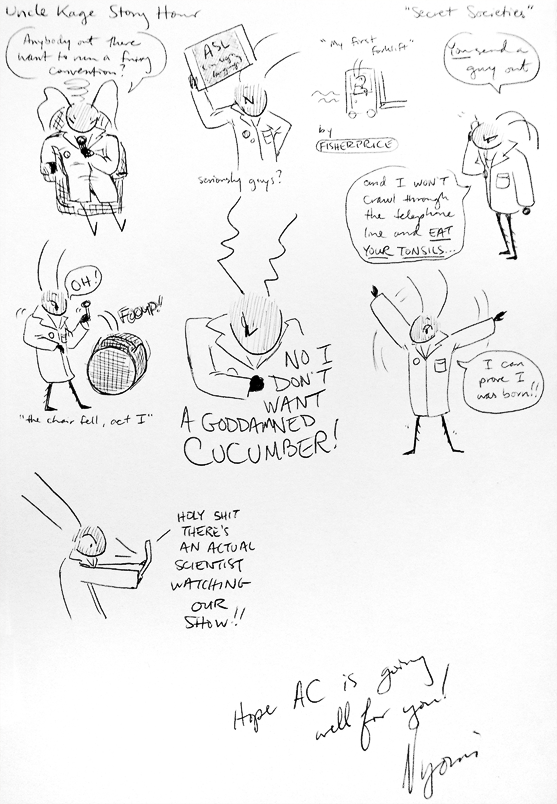 Uncle Kage Story Hour
"Secret Societies"
Anybody out there
want to run a furry
convention?
ASL
seriously guys?
"my first
forklift"
by
FISHERPRICE
You send a
guy out
and I WON'T
crawl through
the telephone
line and EAT
YOUR TONSILS...
OH!
FOOMP!!
"the chair fell, act I"
NO I
DON'T
WANT
A GODDAMNED
CUCUMBER!
I can
prove I
was born!!
HOLY SHIT
THERE'S
AN ACTUAL
SCIENTIST
WATCHING
OUR
SHOW!!
Hope AC is going
well for you!
Nyomi